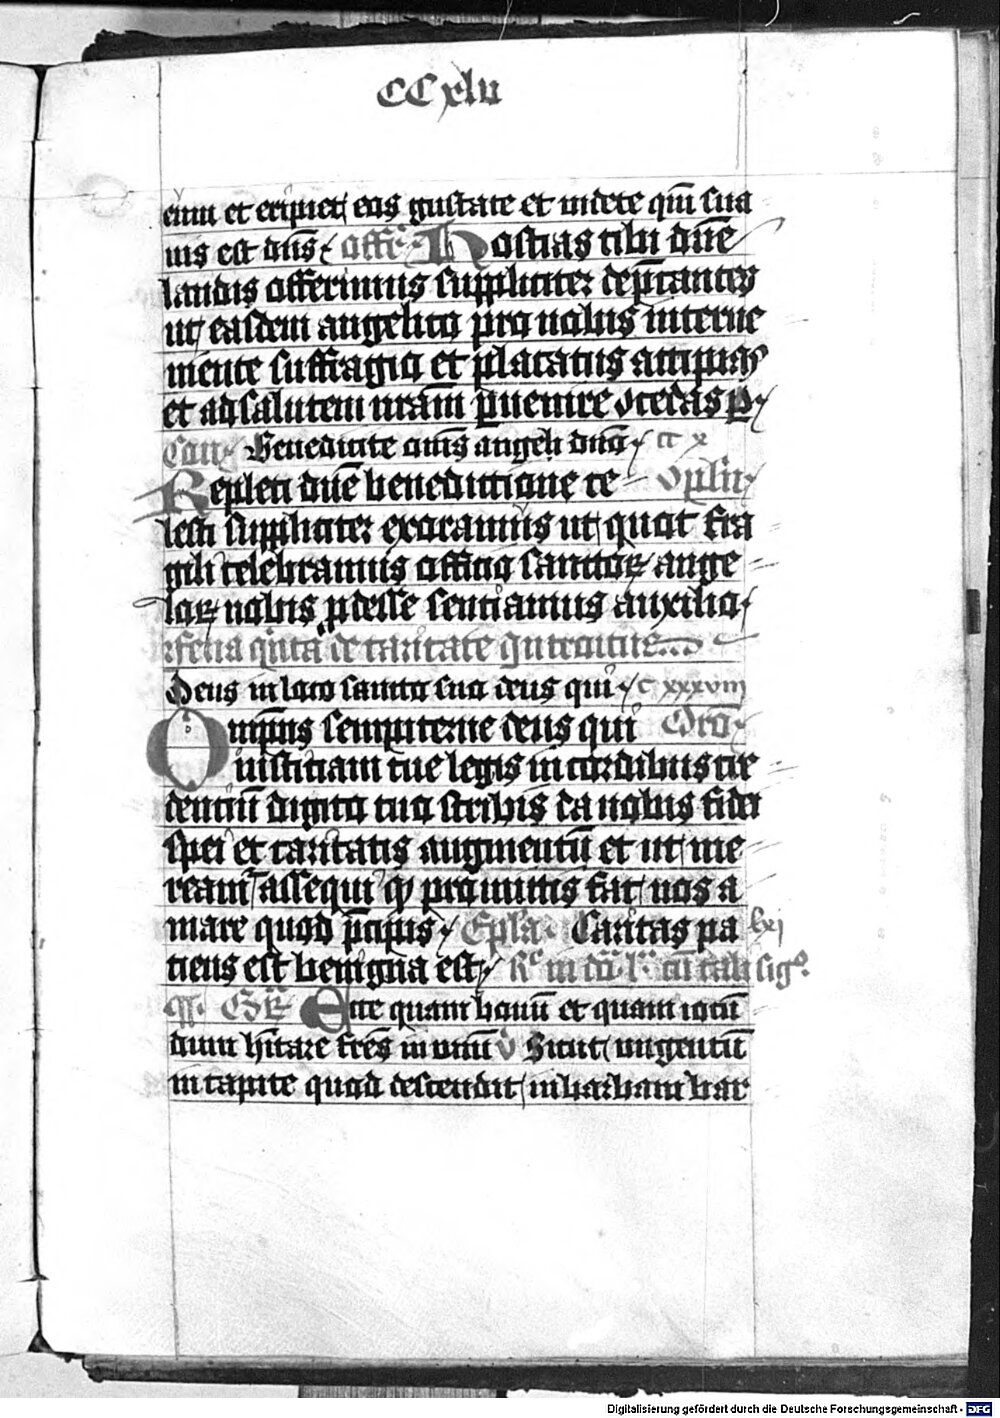 CCxlii
eum et eripiet eos gustate et videte qm̄ sua
uis est dn̄s offr̄ Hostias tibi dn̄e
laudis offerimus suppliciter dep̄cantes
ut easdem angelico pro nobis interue
niente suffragio et placatus accipias
et ad salutem nr̄am ꝑuenire ꝯcedas ꝑ
Com̄ Benedicite om̄s angeli dn̄o cc x
Repleti dn̄e benedictione ce Cōpl̄n
lesti suppliciter exoramus ut quot fra
gili celebramus officio sanctoꝝ ange
loꝝ nobis ꝓdesse sentiamus auxilio
feria quīta de caritate introitus
Deus in loco sancto suo deus qui C xxxviii
Omp̄ns sempiterne deus qui Orō
iusticiam tue legis in cordibus cre
dentiū digito tuo scribis da nobis fidei
spei et caritatis augmentū et ut me
reamr̄ assequi qḏ promittis fac nos a
mare quod p̄cipis Epl̄a Caritas pa lxj
tiens est benigna est
GR̄ Ecce quam bonū et quam iocū
dum hītare fr̄es in vnū v̄ Sicut ungentū
in capite quod descendit in barbam bar
Digitalisierung gefördert durch die Deutsche Forschungsgemeinschaft - DFG